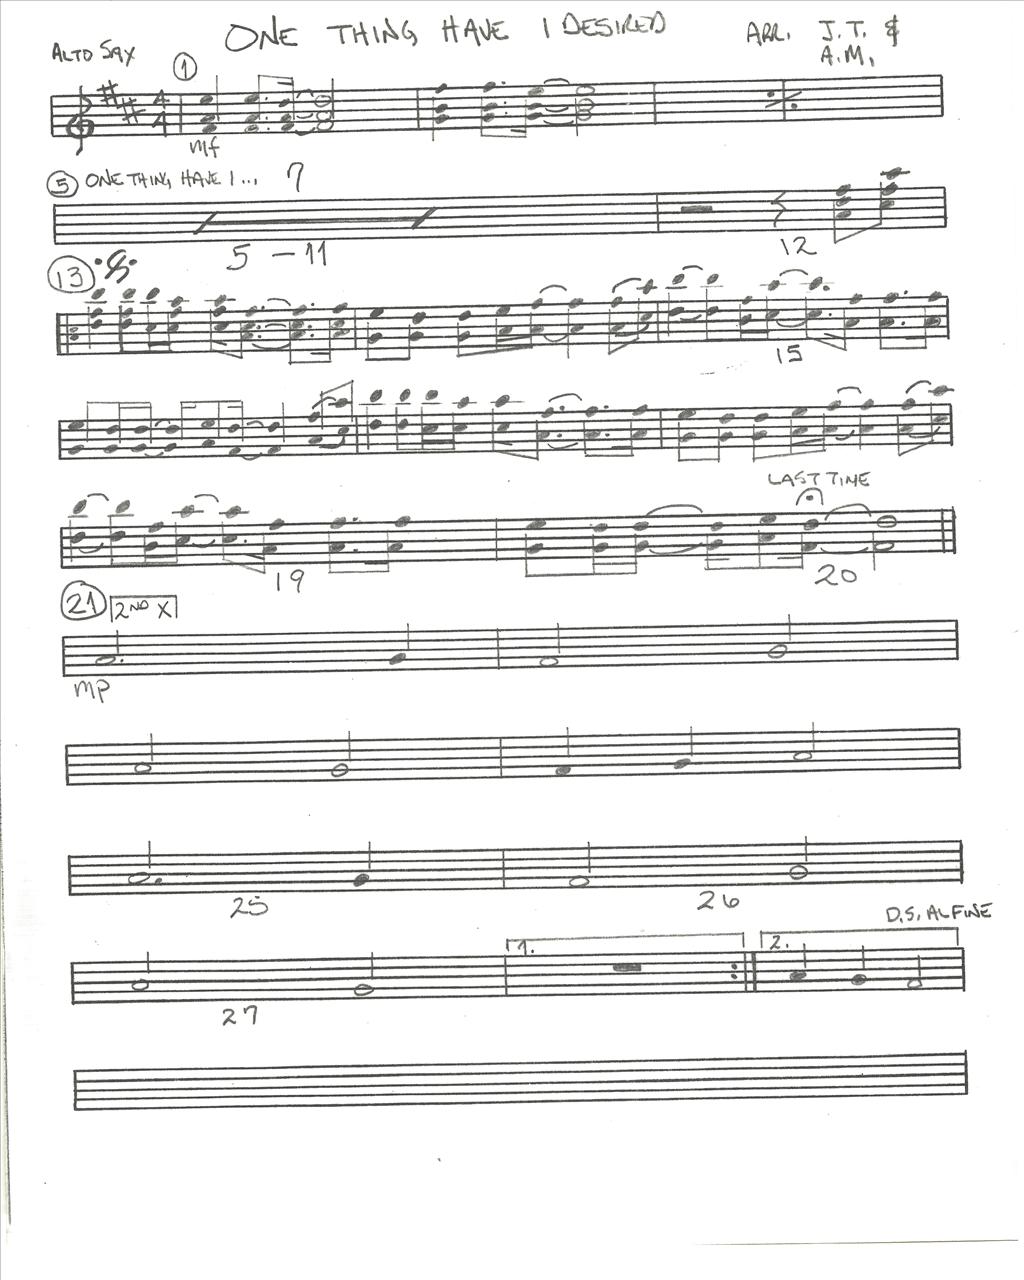 ONE THING HAVE I DESIRED
ARR. J.T. &
A.M.
ALTO SAX
1
4
4
mf
5 ONE THING HAVE I... 7
5 - 11
12
13
15
LAST TIME
19
20
21 2ND X
mp
25
26
D.S. AL FINE
1.
2.
27